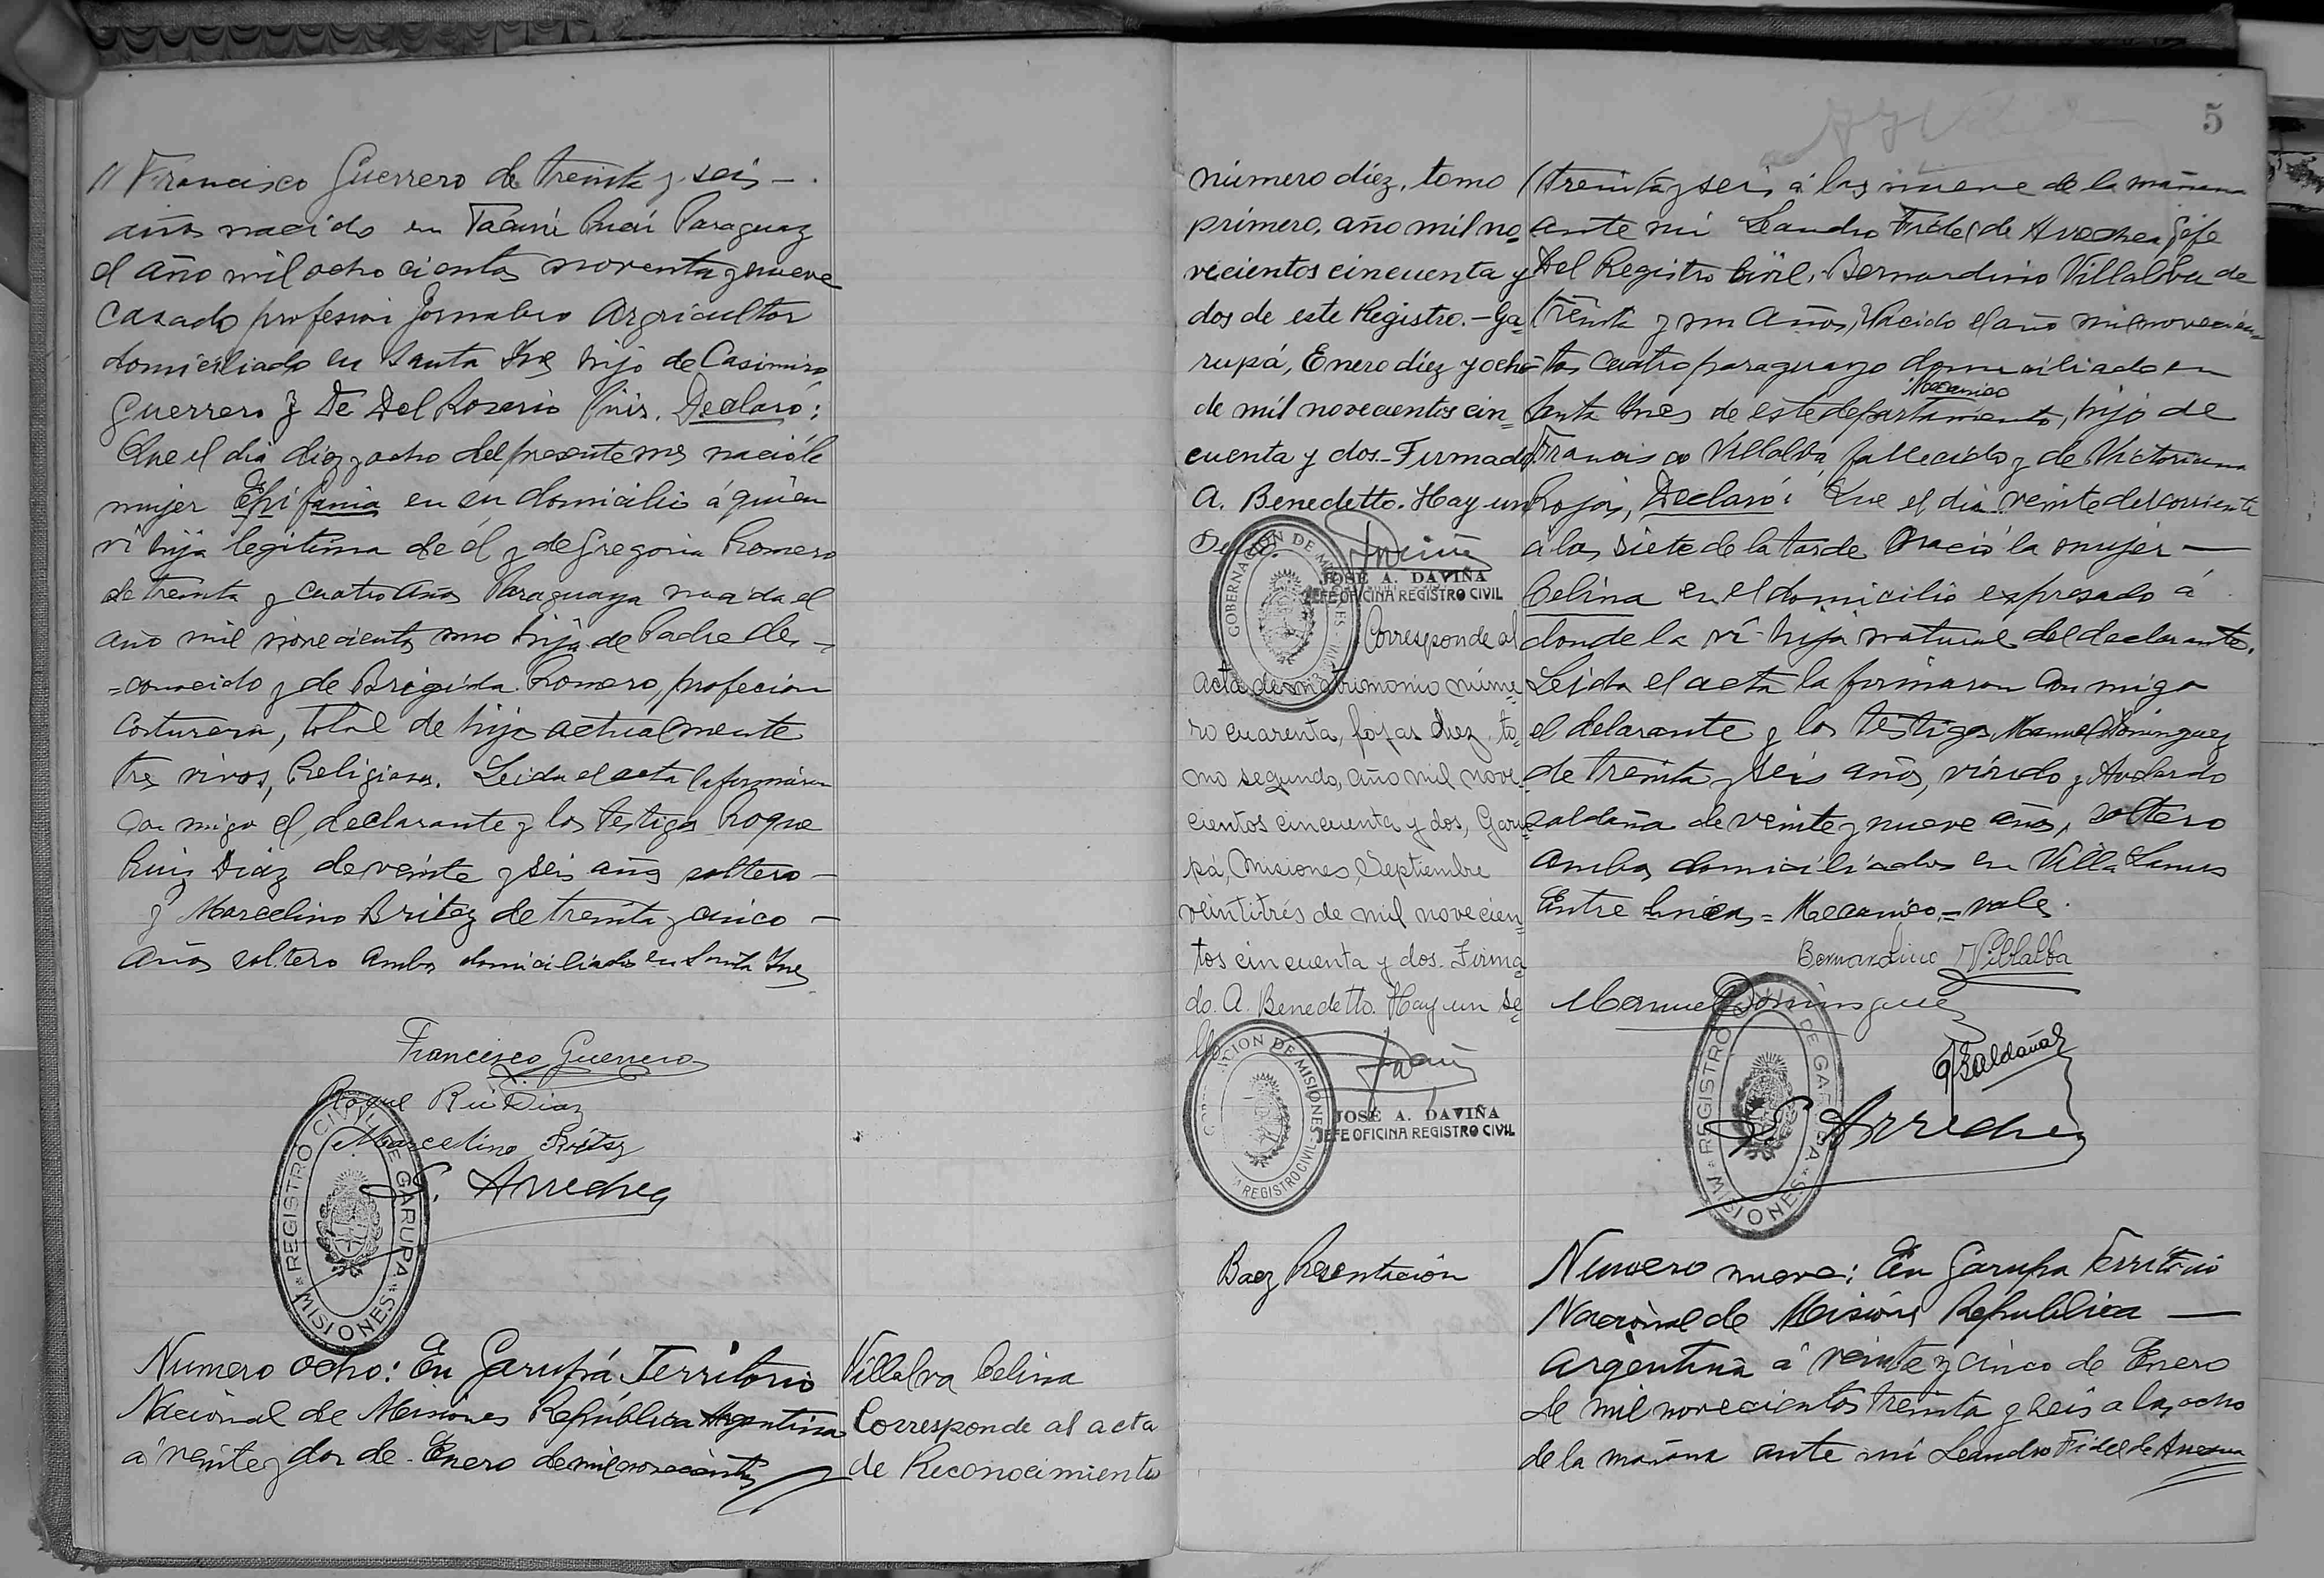 // Francisco Guerrero de treinta y seis —.
años nacido en Paraguay
el año mil ocho cientos noventa y nueve
Casado profesion Jornalero Argricultor
domiciliado en Santa Ines hijo de Casimiro
Guerrero y De Del Rosario Declaró:
Que el dia diez y ocho del presente mes nació la
mujer Epifania en su domicilio á quien
vi hija legitima de él y de Gregoria Romero
de treinta y cuatro años Paraguaya nacida el
año mil novecientos uno hija de Padre des-
=conocido y de Brigida Romero, profecion
Costurera, total de hijos actualmente
tres vivos, Religiosa. Leida el acta la firmáron
con migo el declarante y los testigos Roque
Ruiz Diaz de veinte y seis años soltero —
y Marcelino Britez de treinta y cinco —
años soltero ambos domiciliados en Santa Ines
Francisco Guerrero
Roque Rui Diaz
Marcelino Britez
L. Arrechea
REGISTRO CIVIL DE GARUPA
MISIONES
Numero ocho: En Garupá Territorio
Nacional de Misiones República Argentina
á veinte y dos de Enero de mil novecientos
Villalva Celina
Corresponde al acta
de Reconocimiento
5
número diez, tomo
primero, año mil no-
vecientos cincuenta y
dos de este Registro.- Ga-
rupá, Enero diez y ocho
de mil novecientos cin-
cuenta y dos.- Firmado
A. Benedetto. Hay un
GOBERNACION DE MISIONES
JOSE A. DAVIÑA
JEFE OFICINA REGISTRO CIVIL
Corresponde al
acta de matrimonio núme-
ro cuarenta, fojas diez, to-
mo segundo, año mil nove-
cientos cincuenta y dos, Garu-
pá, Misiones, Septiembre
veintitrés de mil novecien-
tos cincuenta y dos. Firma-
do. A. Benedetto. Hay un se-
llo.
MISIONES
REGISTRO CIVIL
JOSE A. DAVIÑA
JEFE OFICINA REGISTRO CIVIL
Baez Presentación
treinta y seis á las nueve de la mañana
ante mi Leandro Fidel de Arrechea Jefe
Del Registro Civil, Bernardino Villalba de
treinta y un años, Nacido el año mil novecien-
tos cuatro paraguayo domiciliado en
Mecanico
Santa Ines de este departamento, hijo de
Francisco Villalba, fallecido y de Victoriana
Rojas, Declaró: Que el dia veinte del corriente
a las siete de la tarde Nació la mujer —
Celina en el domicilio expresado á
donde la ví hija natural del declarante.
Leida el acta la firmáron con migo
el delarante y los testigos Manuel Dominguez
de treinta y seis años, viudo y
Saldaña de veinte y nueve años, soltero
ambos domiciliados en Villa Lanus
Entre lineas = Mecanico = vale.
Bernardino Villalba
Manuel Dominguez
Saldaña
L. Arrechea
REGISTRO CIVIL DE GARUPA
MISIONES
Numero nueve: En Garupa Territorio
Nacional de Misiones Republica —
Argentina á veinte y cinco de Enero
de mil novecientos treinta y seis a las ocho
de la mañana ante mi Leandro Fidel de Arrechea